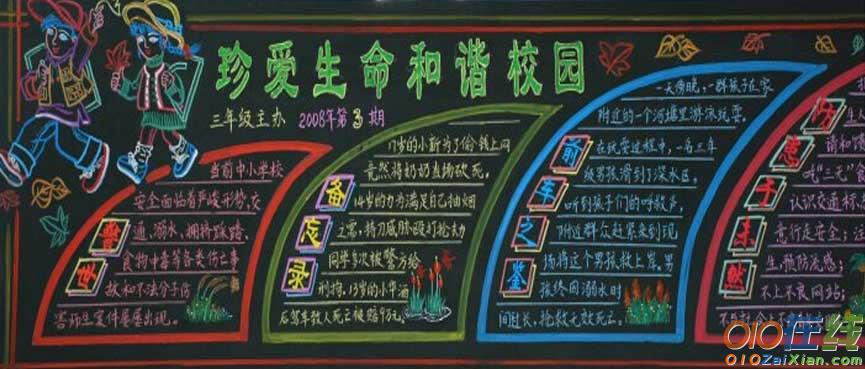 珍爱生命和谐校园
三年级主办 2008年第3期
警世
当前中小学校
安全面临着严峻形势,交
通、溺水、拥挤踩踏、
食物中毒等各类伤亡事
故和不法分子伤
害师生案件屡屡出现。
备忘录
17岁的小新为了偷钱上网
竟然将奶奶当场砍死。
14岁的力为满足自己抽烟
之需,持刀威胁殴打抢劫
同学多次被警方给
刑拘。13岁的小华酒
后驾车致人死亡被赔9万元。
前车之鉴
一天傍晚,一群孩子在家
附近的一个河塘里游泳玩耍。
在玩耍过程中,一名三年
级男孩滑到了深水区。
听到孩子们的呼救声,
附近群众赶紧来到现
场将这个男孩救上岸。男
孩终因溺水时
间过长,抢救无效死亡。
防患于未然
请和
吃"三无"食
认识交通标
意行走安全;注
生,预防流感;
不上不良网站;
010在线
010ZaiXian.com